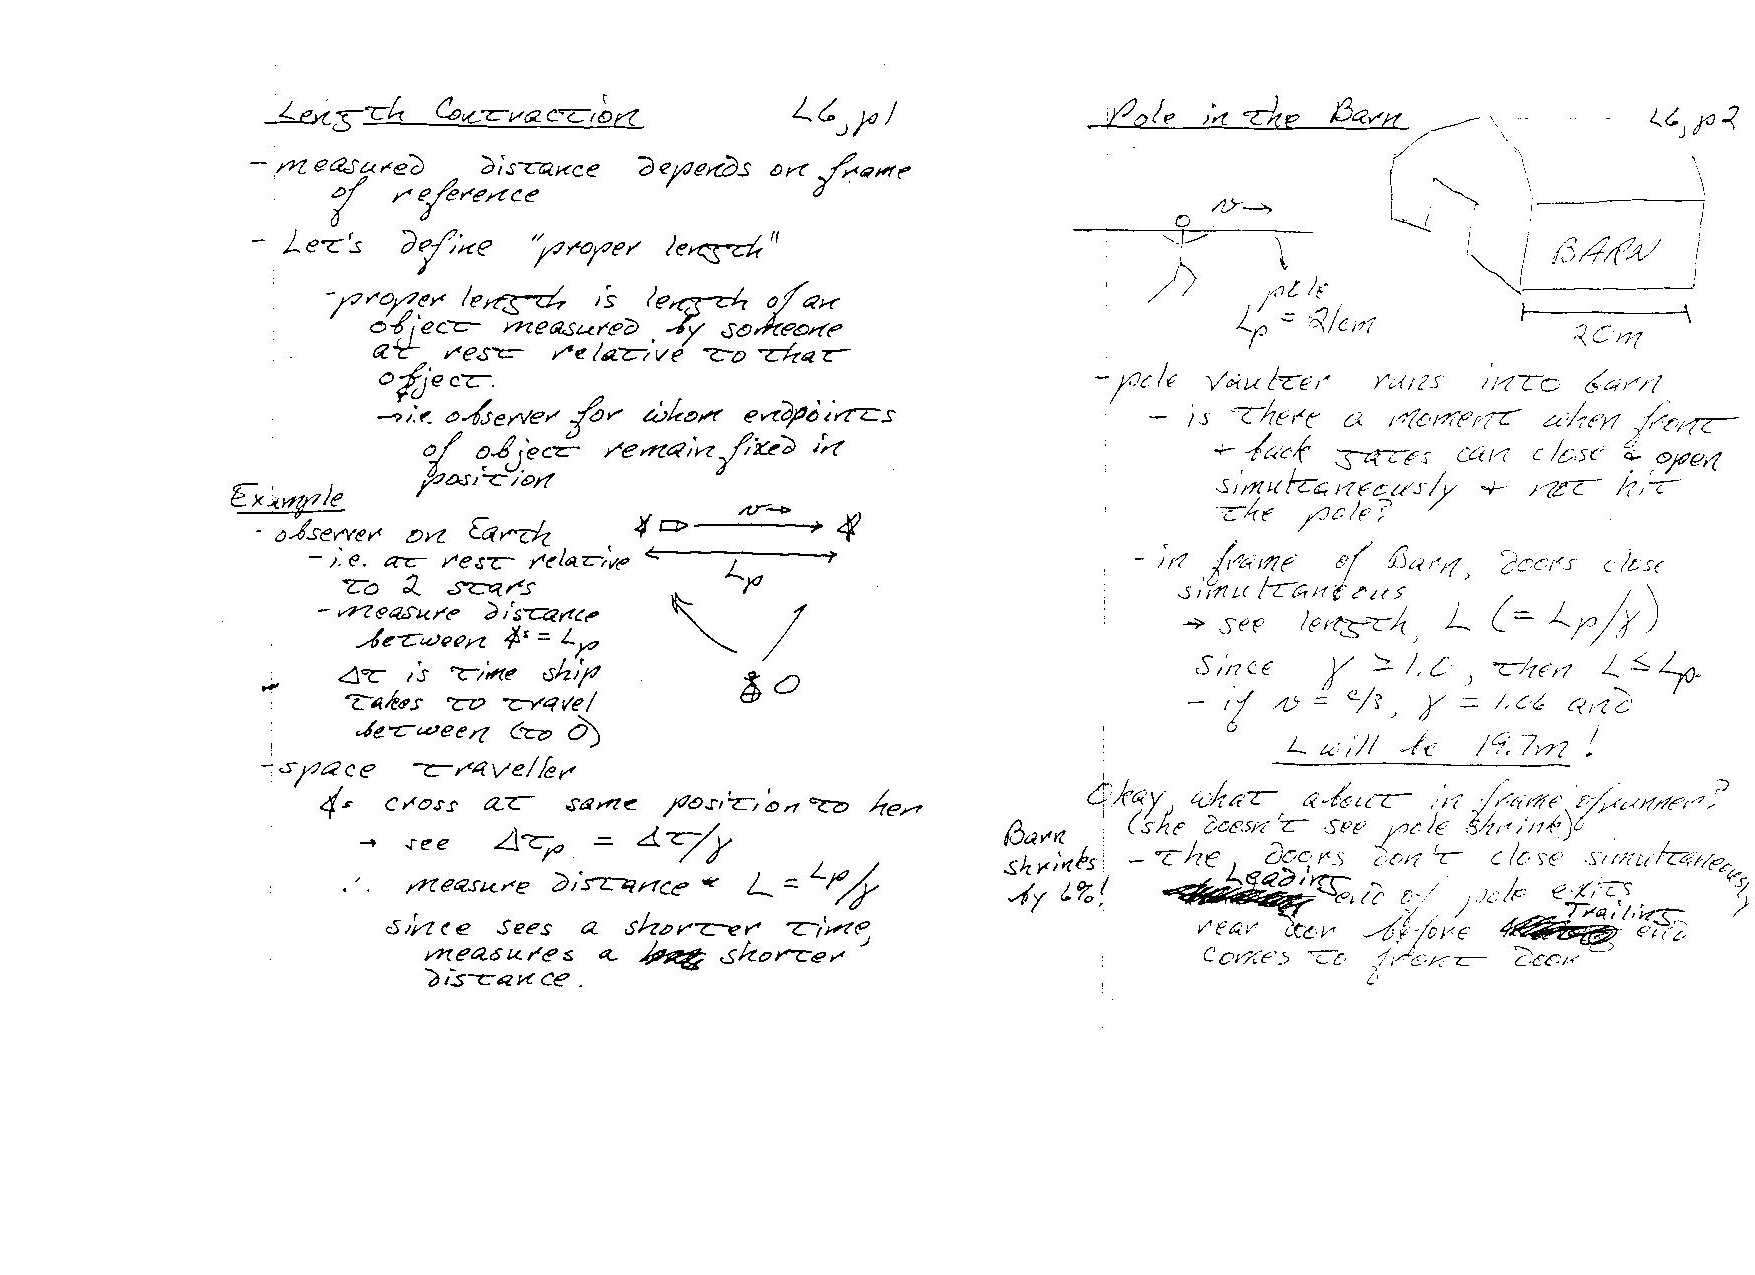 Length Contraction L6, p1
- measured distance depends on frame
of reference
- Let's define "proper length"
- proper length is length of an
object measured by someone
at rest relative to that
object.
→ i.e. observer for whom endpoints
of object remain fixed in
position
Example
- observer on Earth
- i.e. at rest relative
to 2 stars
- measure distance
between ☆s = Lp
Δt is time ship
takes to travel
between (to O)
v →
Lp
- space traveller
☆s cross at same position to her
→ see Δtp = Δt/γ
∴ measure distance L = Lp/γ
since sees a shorter time,
measures a shorter
distance.
Pole in the Barn L6, p2
v →
BARN
pole
Lp = 21cm
20m
- pole vaulter runs into barn
- is there a moment when front
+ back gates can close & open
simultaneously + not hit
the pole?
- in frame of Barn, doors close
simultaneous
→ see length, L (= Lp/γ)
since γ ≥ 1.0, then L ≤ Lp
- if v = c/3, γ = 1.06 and
L will be 19.7m!
Okay, what about in frame of runner?
(she doesn't see pole shrink)
Barn
shrinks
by 6%!
- the doors don't close simultaneously
Leading end of pole exits
rear door before Trailing end
comes to front door